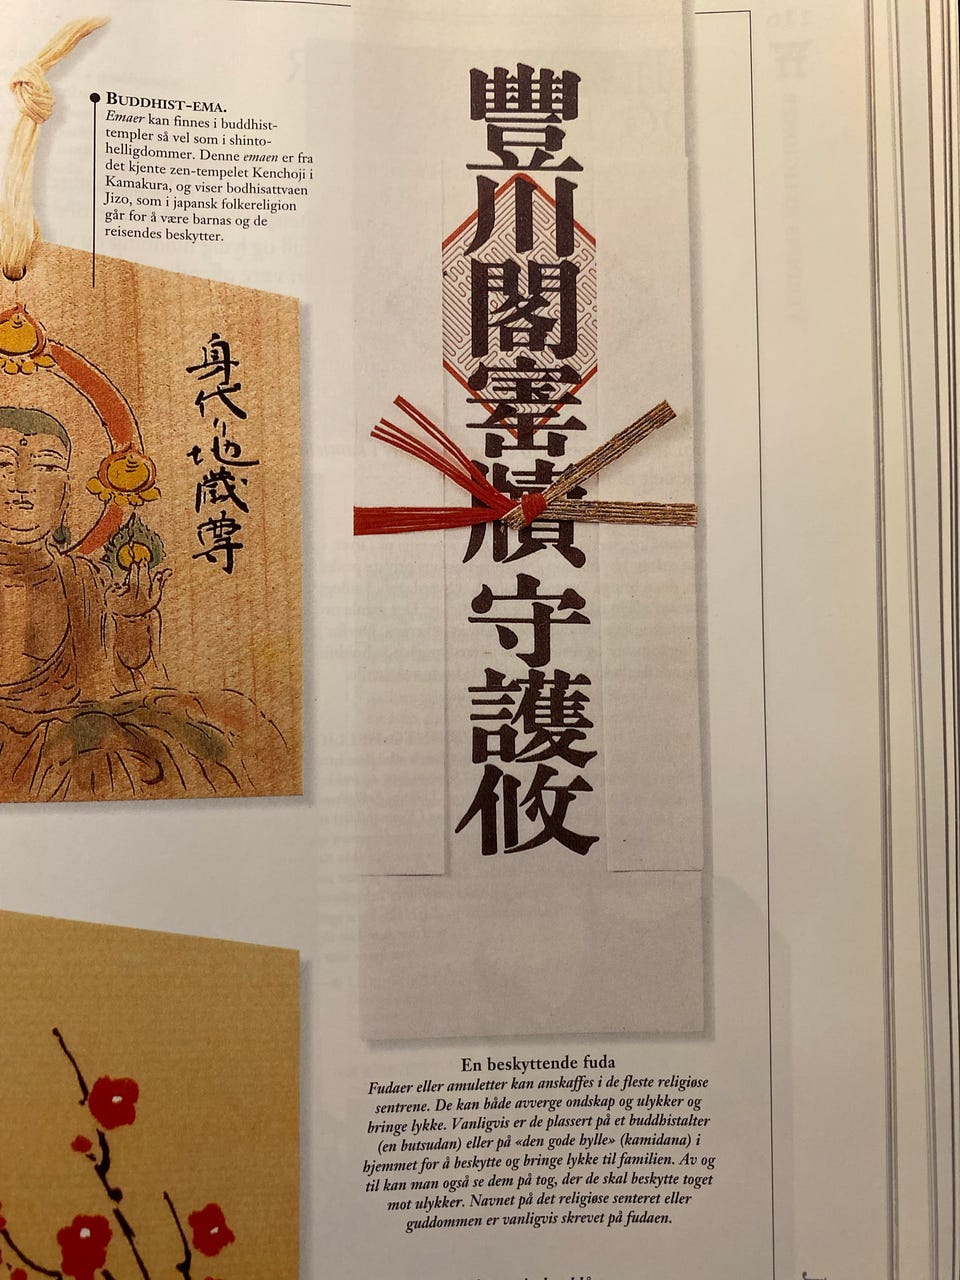 BUDDHIST-EMA.
Emaer kan finnes i buddhist-
templer så vel som i shinto-
helligdommer. Denne emaen er fra
det kjente zen-tempelet Kenchoji i
Kamakura, og viser bodhisattvaen
Jizo, som i japansk folkereligion
går for å være barnas og de
reisendes beskytter.
身代り地蔵尊
豐川閣寚牘守護攸
En beskyttende fuda
Fudaer eller amuletter kan anskaffes i de fleste religiøse
sentrene. De kan både avverge ondskap og ulykker og
bringe lykke. Vanligvis er de plassert på et buddhistalter
(en butsudan) eller på «den gode hylle» (kamidana) i
hjemmet for å beskytte og bringe lykke til familien. Av og
til kan man også se dem på tog, der de skal beskytte toget
mot ulykker. Navnet på det religiøse senteret eller
guddommen er vanligvis skrevet på fudaen.